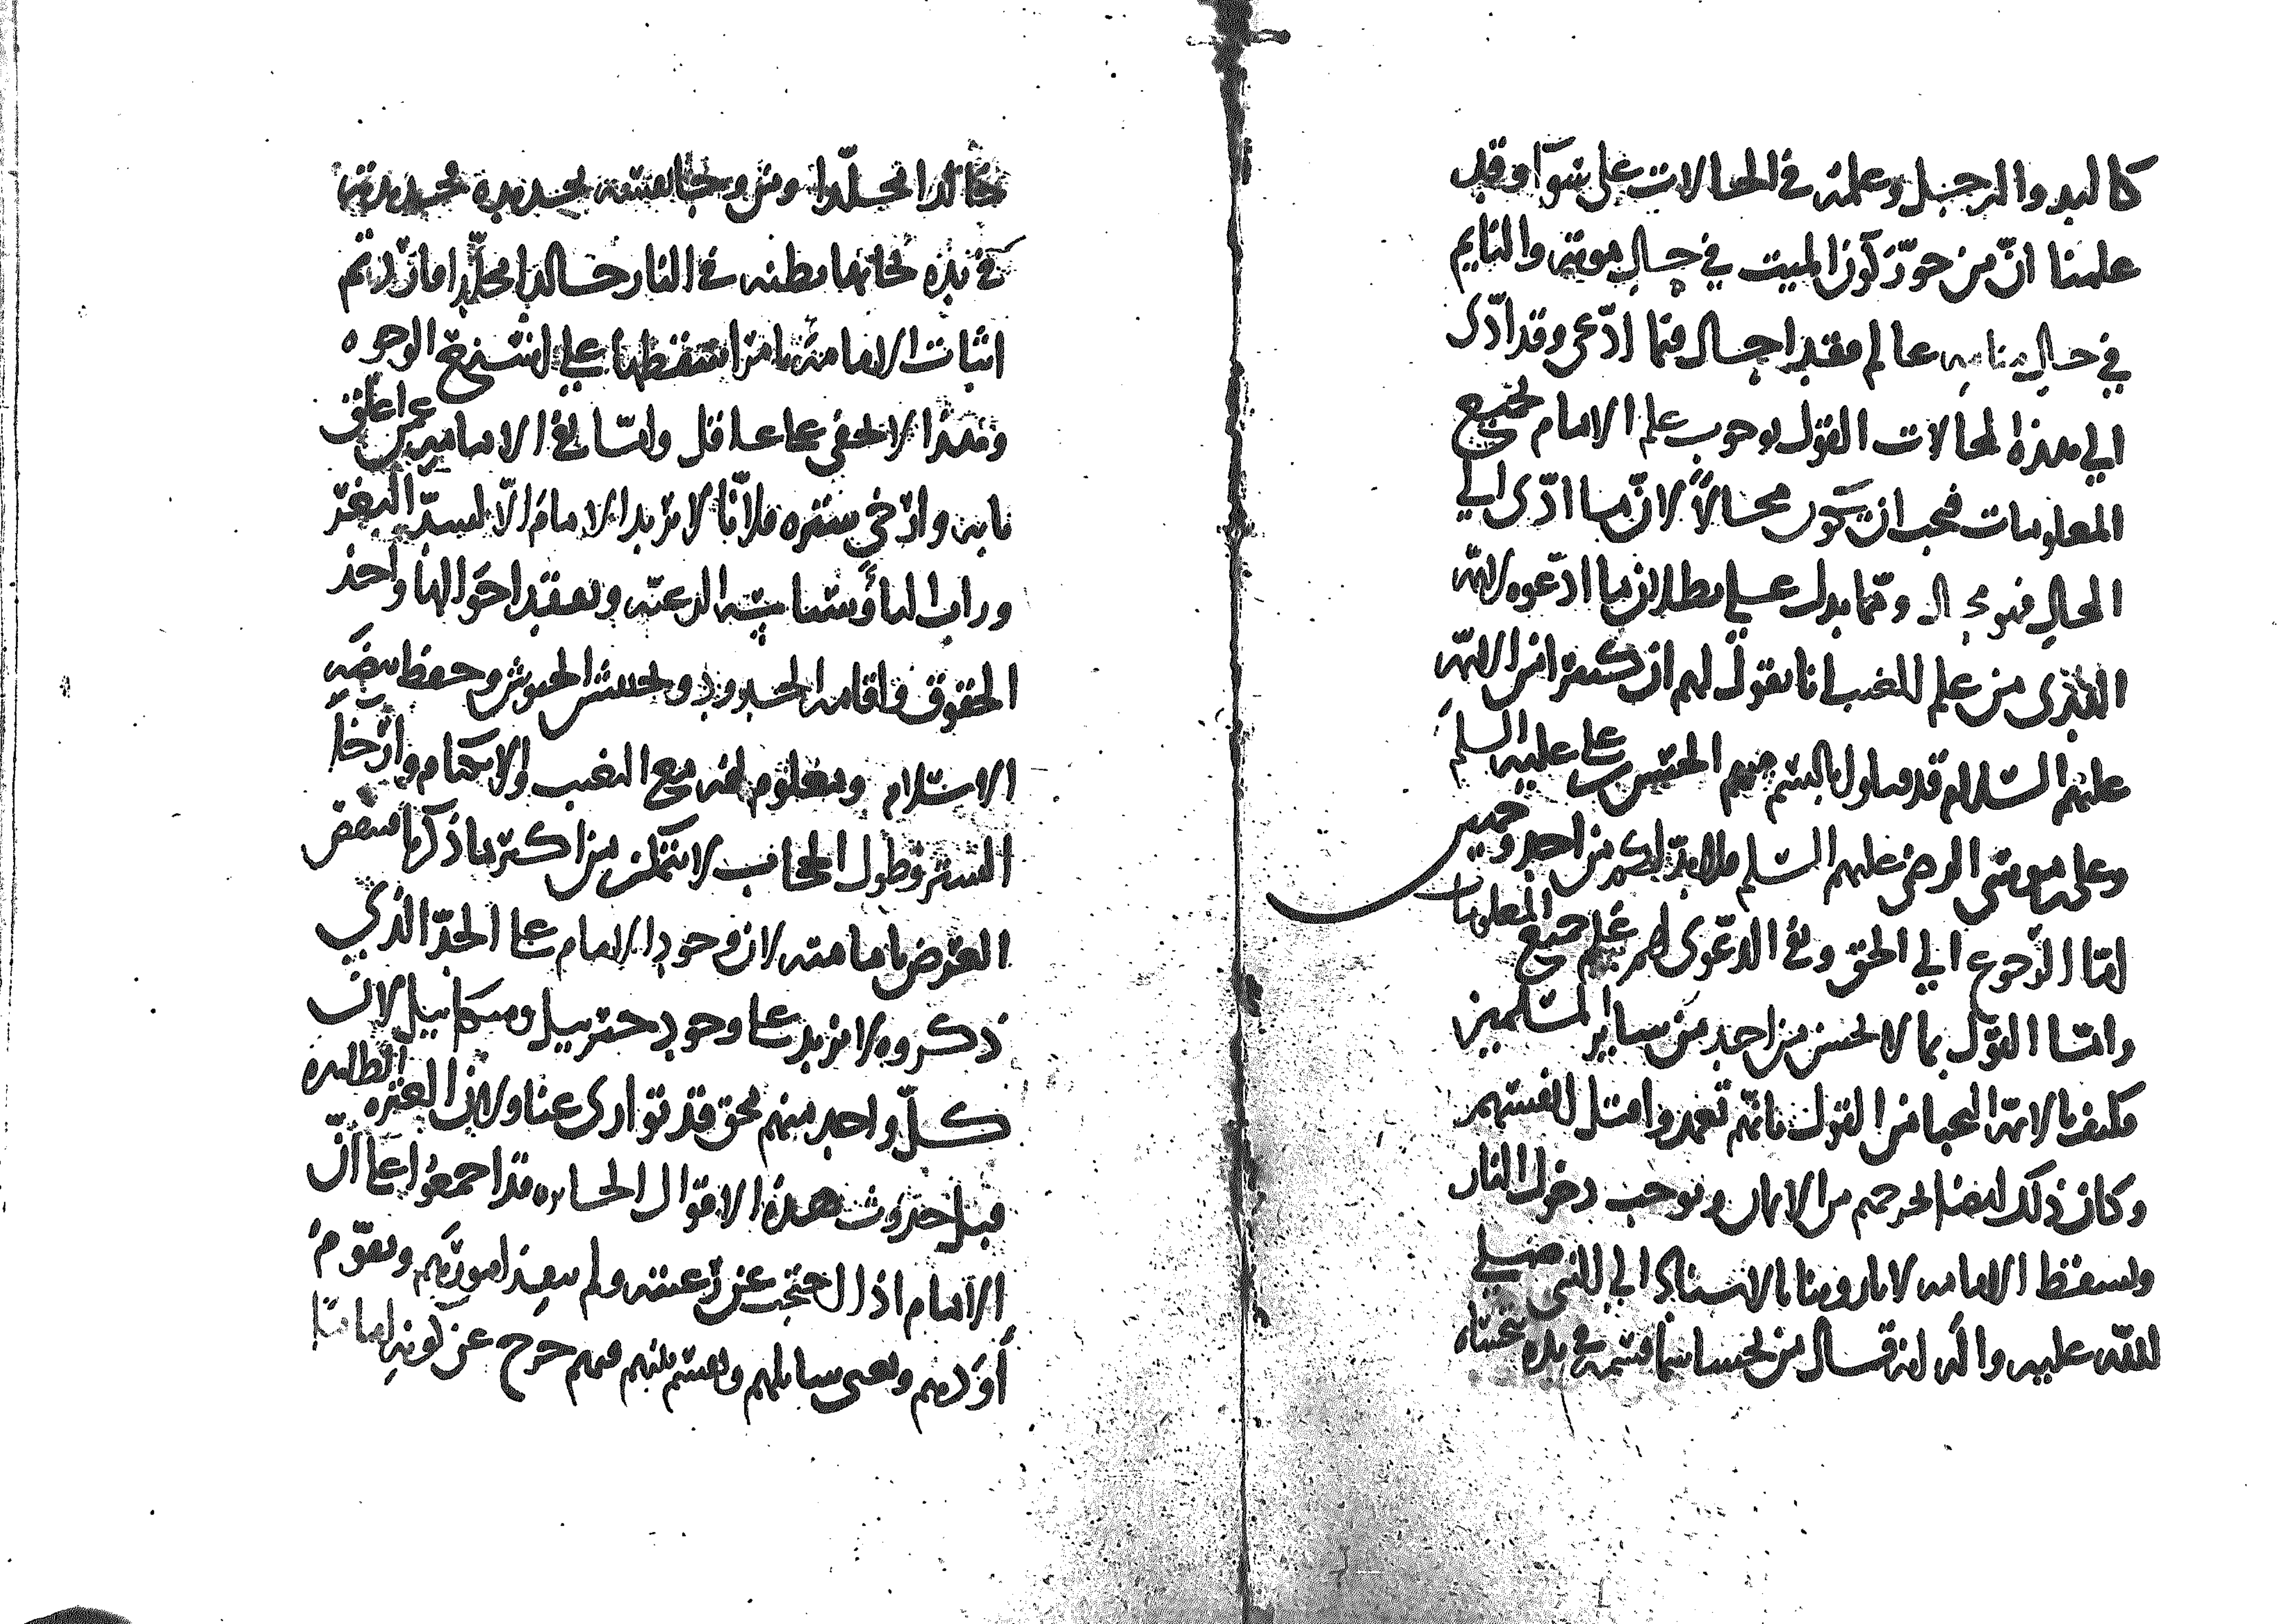 كاليد والرجل وعلمه في الحالات على سوآ وقد
علمنا انّ من جوّز كون الميت في حال موته والنايم
في حال منامه عالم فقد احال فيما ادّعى وقد ادّى
الى هذه الحالات القول بوجوب علم الامام لجميع
المعلومات فيجب ان يكون محالاً لانّ ما ادّى الى
المحال فهو محال ومما يدل على بطلان ما ادّعوه لائمة
الهدى من علم الغيب انا نقول لهم ان كثيرا من الائمة
عليهم السلام قد مات بالسم منهم الحسن بن علي عليه السلم
وعلي بن موسى الرضى عليهم السلم فلا بد لكم من احد وجهين
امّا الرّجوع الى الحق ونفي الدّعوى لهم علم جميع المعلومات
وامّا القول بما لا يحسن من احد من ساير المسلمين
فكيف بالائمة النجبا من القول بانّهم تعمدوا قتل انفسهم
وكان ذلك ايضا يخرجهم من الايمان ويوجب دخول النار
ويسقط الامامه لما روينا بالاسناد الى النبي صلى
الله عليه واله انه قال من تحسا سما فسمه في يده يتحساه
خالدا مخلّدا ومن وجا نفسه بحديده فحديدته
في يده يجا بها بطنه في النار خالدا مخلّدا فاردتم
اثبات الامامة بامر اسقطها على اشنع الوجوه
وهذا لا يخفى على عاقل وامّا نفي الامامة عمن اغلق
بابه وارخى ستره فلانّا لا نريد الامام الّا لسدّ الثغر
وراب الثأو وسياسة الرعيّه وتفقد احوالها واخذ
الحقوق واقامة الحدود وتجييش الجيوش وحفظ بيضة
الاسلام ومعلوم انه مع المغيب والاكتتام وارخا
الستر وطول الحجاب لا يتمكن من اكثر ما ذكرنا فينتقض
الغرض بامامته لان وجود الامام على الحدّ الذي
ذكروه لا يزيد على وجود جبريل وميكاييل لان
كلّ واحد منهم محق قد توارى عنا ولان العترة الطاهره
قبل حدوث هذه الاقوال الحادثه قد اجمعوا على انّ
الامام اذا احتجب عن رعيته ولم ينفذ امورهم ويقوّم
أودهم ويعطي سايلهم ويقسم فيئهم فهم خرج عن كونه اماما